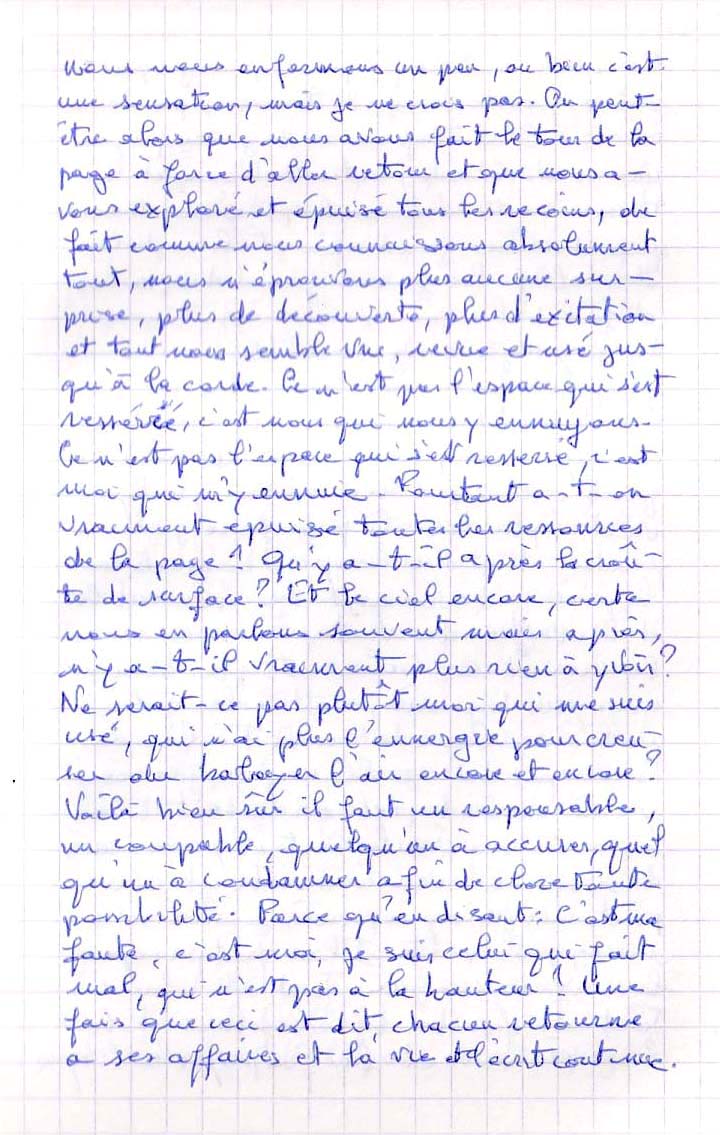 nous nous enfermons un peu, ou bien c'est
une sensation, mais je ne crois pas. Ou peut-
être alors que nous avons fait le tour de la
page à force d'aller retour et que nous a-
vons exploré et épuisé tous les recoins, du
fait comme nous connaissons absolument
tout, nous n'éprouvons plus aucune sur-
prise, plus de découverte, plus d'exitation
et tout nous semble vue, revue et usé jus-
qu'à la corde. Ce n'est pas l'espace qui s'est
resserré, c'est nous qui nous y ennuyons.
Ce n'est pas l'espace qui s'est resserré, c'est
moi qui m'y ennuie. Pourtant a-t-on
vraiment épuisé toutes les ressources
de la page? Qu'y a-t-il après la croû-
te de surface? Et le ciel encore, certe
nous en parlons souvent mais après,
n'y a-t-il vraiment plus rien à y voir?
Ne serait-ce pas plutôt moi qui me suis
usé, qui n'ai plus l'ennergie pour creu-
ser ou balayer l'air encore et encore?
Voilà bien sûr il faut un responsable,
un coupable, quelqu'un à accuser, quel
qu'un à condamner afin de clore toute
possibilité. Parce qu'en disant: C'est ma
faute, c'est moi, je suis celui qui fait
mal, qui n'est pas à la hauteur! Une
fois que ceci est dit, chacun retourne
a ses affaires et la vie d'écrit continue.